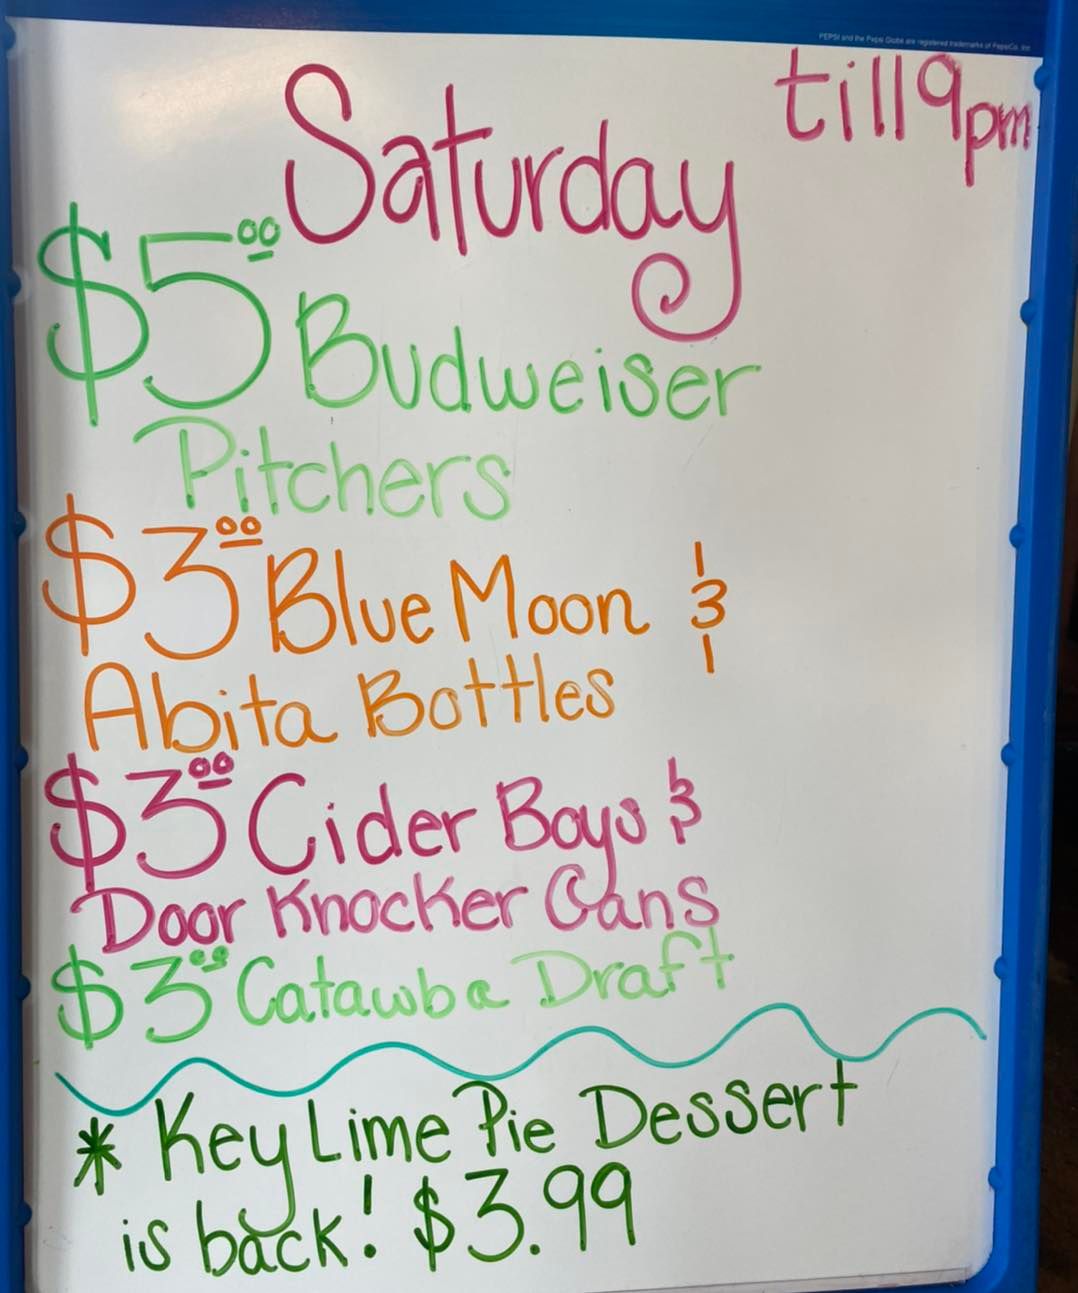 PEPSI and the Pepsi Globe are registered trademarks of PepsiCo, Inc.
till 9pm
Saturday
$5.00 Budweiser
Pitchers
$3.00 Blue Moon &
Abita Bottles
$3.00 Cider Boys &
Door Knocker Cans
$3.00 Catawba Draft
* Key Lime Pie Dessert
is back! $3.99